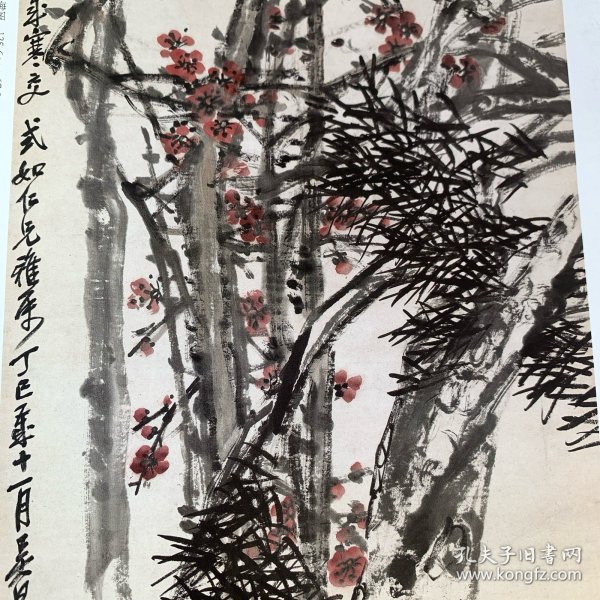 成寒交 式如仁兄雅属 丁巳年十一月吴昌
孔夫子旧书网
www.kongfz.com